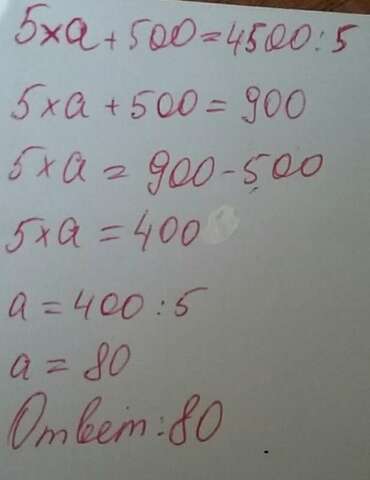 5×a+500=4500:5
5×a+500=900
5×a=900-500
5×a=400
a=400:5
a=80
Ответ:80